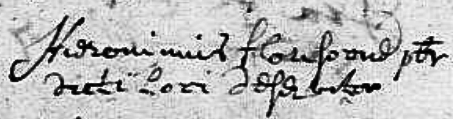 Hieronimus pbr
dicti loci deservitor